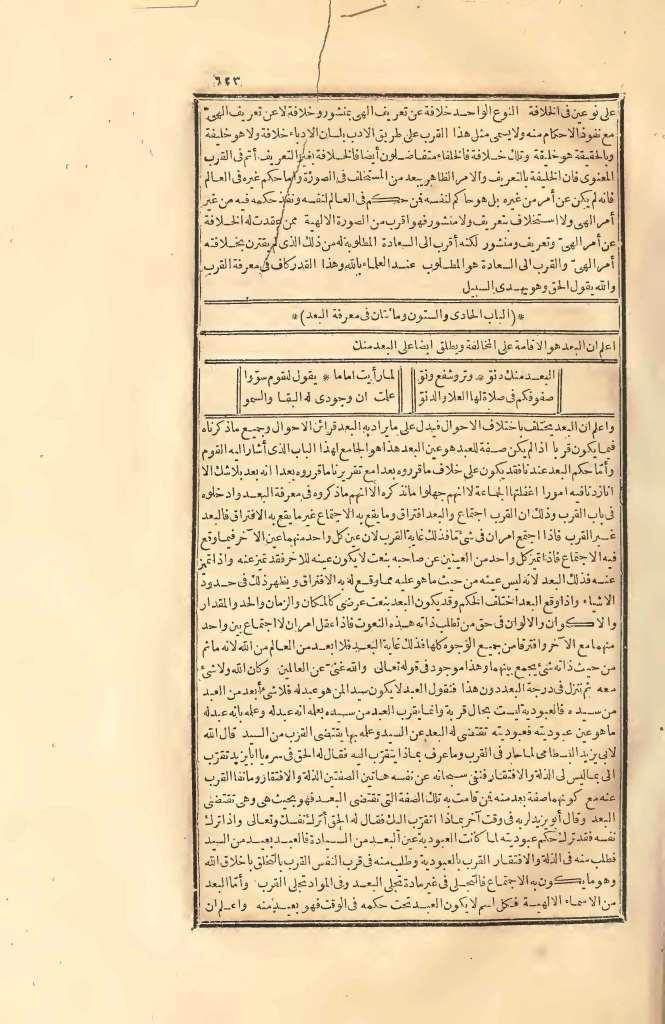 ٦٢٣
على نوعين فى الخلافة النوع الواحد خلافة عن تعريف الهى بمنشور وخلافة لا عن تعريف الهىّ
مع نفوذ الاحكام منه ولا يسمى مثل هذا القرب على طريق الادب بلسان الادباء خلافة ولا هو خليفة
وبالحقيقة هو خليفة وتلك خلافة فالخلفاء متفاضلون أيضا فالخلافة بغير التعريف أتم فى القرب
المعنوى فان الخليفة بالتعريف والامر الظاهر يبعد من المستخلف فى الصورة واما حكم غيره فى العالم
فانه لم يكن عن أمر من غيره بل هو حاكم لنفسه فمن حكم فى العالم لنفسه ونفذ حكمه فيه من غير
أمر الهى ولا استخلاف بتعريف ولا منشور فهو اقرب من الصورة الالهية ممن عقدت له الخلافة
عن أمر الهىّ وتعريف ومنشور لكنه أقرب الى السعادة المطلوبة له من ذلك الذى لم يقترن بخلافته
أمر الهىّ والقرب الى السعادة هو المطلوب عند العلماء بالله وهذا القدر كاف فى معرفة القرب
والله يقول الحق وهو يهدى السبيل
* (الباب الحادى والستون ومائتان فى معرفة البعد) *
اعلم ان البعد هو الاقامة على المخالفة ويطلق ايضا على البعد منك
البعد منك دنوّ * وتر وشفع وتوّ لما رأيت اماما * يقول لقوم سوّوا
صفوفكم فى صلاة لها العلا والدنوّ علمت ان وجودى له البقا والسموّ
واعلم ان البعد يختلف باختلاف الاحوال فيدل على ما يراد به البعد قرائن الاحوال وجميع ما ذكرناه
فيما يكون قربا اذا لم يكن صفة للعبد هو عين البعد هذا هو الجامع لهذا الباب الذى أشار اليه القوم
وأمّا حكم البعد عندنا فقد يكون على خلاف ما قرروه بعدا مع تقريرنا ما قرروه بعدا انه بعد بلا شك الا
انا زدنا فيه امورا اغفلتها الجماعة لا انهم جهلوا ما نذكره الا انهم ما ذكروه فى معرفة البعد وادخلوه
فى باب القرب وذلك ان القرب اجتماع والبعد افتراق وما يقع به الاجتماع غير ما يقع به الافتراق فالبعد
غير القرب فاذا اجتمع امران فى شئ ما فذلك غاية القرب لان عين كل واحد منهما عين الآخر فيما وقع
فيه الاجتماع فاذا تميز كل واحد من العينين عن صاحبه بنعت لا يكون عينه للآخر فقد تميز عنه واذا تميز
عنه فذلك البعد لانه ليس عينه من حيث ما هو عليه مما وقع له به الافتراق ويظهر ذلك فى حدود
الاشياء واذا وقع البعد اختلف الحكم وقد يكون البعد بنعت عرضى كالمكان والزمان والحد والمقدار
والاكوان والالوان فى حق من تطلب ذاته هذه النعوت فاذا عقل امران لا اجتماع بين واحد
منهما مع الآخر وافترقا من جميع الوجوه كلها فذلك غاية البعد فلا ابعد من العالم من الله لانه ما ثم
من حيث ذاته شئ يجمع بينهما وهذا موجود فى قوله تعالى والله غنىّ عن العالمين وكان الله ولا شئ
معه ثم ننزل فى درجة البعد دون هذا فنقول العبد لا يكون سيد المن هو عبد له فلا شئ أبعد من العبد
من سيده فالعبودية ليست بحال قربة وانما يقرب العبد من سيده بعلمه انه عبد له وعلمه بانه عبد له
ما هو عين عبوديته فعبوديته تقتضى له البعد عن السيد وعلمه بها يقتضى القرب من السيد قال الله
لابى يزيد البسطامى لما حار فى القرب وما عرف بماذا يتقرّب اليه فقال له الحق فى سره يا أبا يزيد تقرّب
الى بما ليس لى الذلة والافتقار فنفى سبحانه عن نفسه هاتين الصفتين الذلة والافتقار وما نفاه القرب
عنه مع كونهما صفة بعد منه فمن قامت به تلك الصفة التى تقتضى البعد فهو بحيث هى وهى تقتضى
البعد وقال أبو يزيد لربه فى وقت آخر بماذا اتقرّب اليك فقال له الحق أترك نفسك وتعالى واذا ترك
نفسه فقد ترك حكم عبوديته لما كانت العبودية عين البعد من السيادة فالعبد بعيد من السيد
فطلب منه فى الذلة والافتقار القرب بالعبودية وطلب منه فى ترك النفس القرب بالتخلق باخلاق الله
وهو ما يكون به الاجتماع فالتجلى فى غير مادة تجلى البعد وفى المواد تجلى القرب وأمّا البعد
من الاسماء الالهية فكل اسم لا يكون العبد تحت حكمه فى الوقت فهو بعيد منه واعلم ان